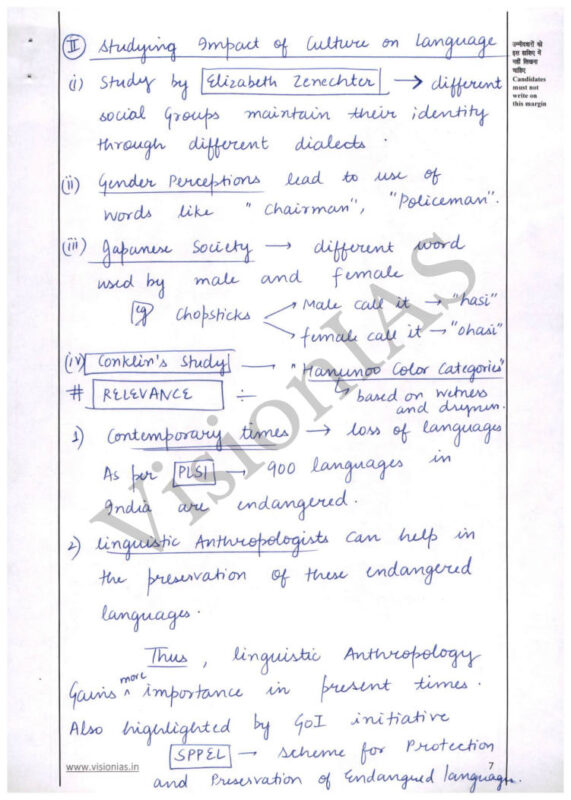 II Studying Impact of Culture on Language
(i) Study by Elizabeth Zenechter → different
social Groups maintain their identity
through different dialects.
(ii) Gender Perceptions lead to use of
words like "Chairman", "Policeman".
(iii) Japanese Society → different word
used by male and female
eg Chopsticks → Male call it → "hasi"
→ female call it → "ohasi"
(iv) Conklin's Study → "Hanunoo Color Categories"
# RELEVANCE ÷ ↳ based on wetness
and dryness.
1) Contemporary times → loss of languages
As per PLSI → 900 languages in
India are endangered.
2) linguistic Anthropologists can help in
the preservation of these endangered
languages.
Thus, linguistic Anthropology
Gains more importance in present times.
Also highlighted by GoI initiative
SPPEL → Scheme for Protection
and Preservation of Endangered languages.
उम्मीदवारों को
इस हाशिए में
नहीं लिखना
चाहिए
Candidates
must not
write on
this margin
VisionIAS
www.visionias.in
7